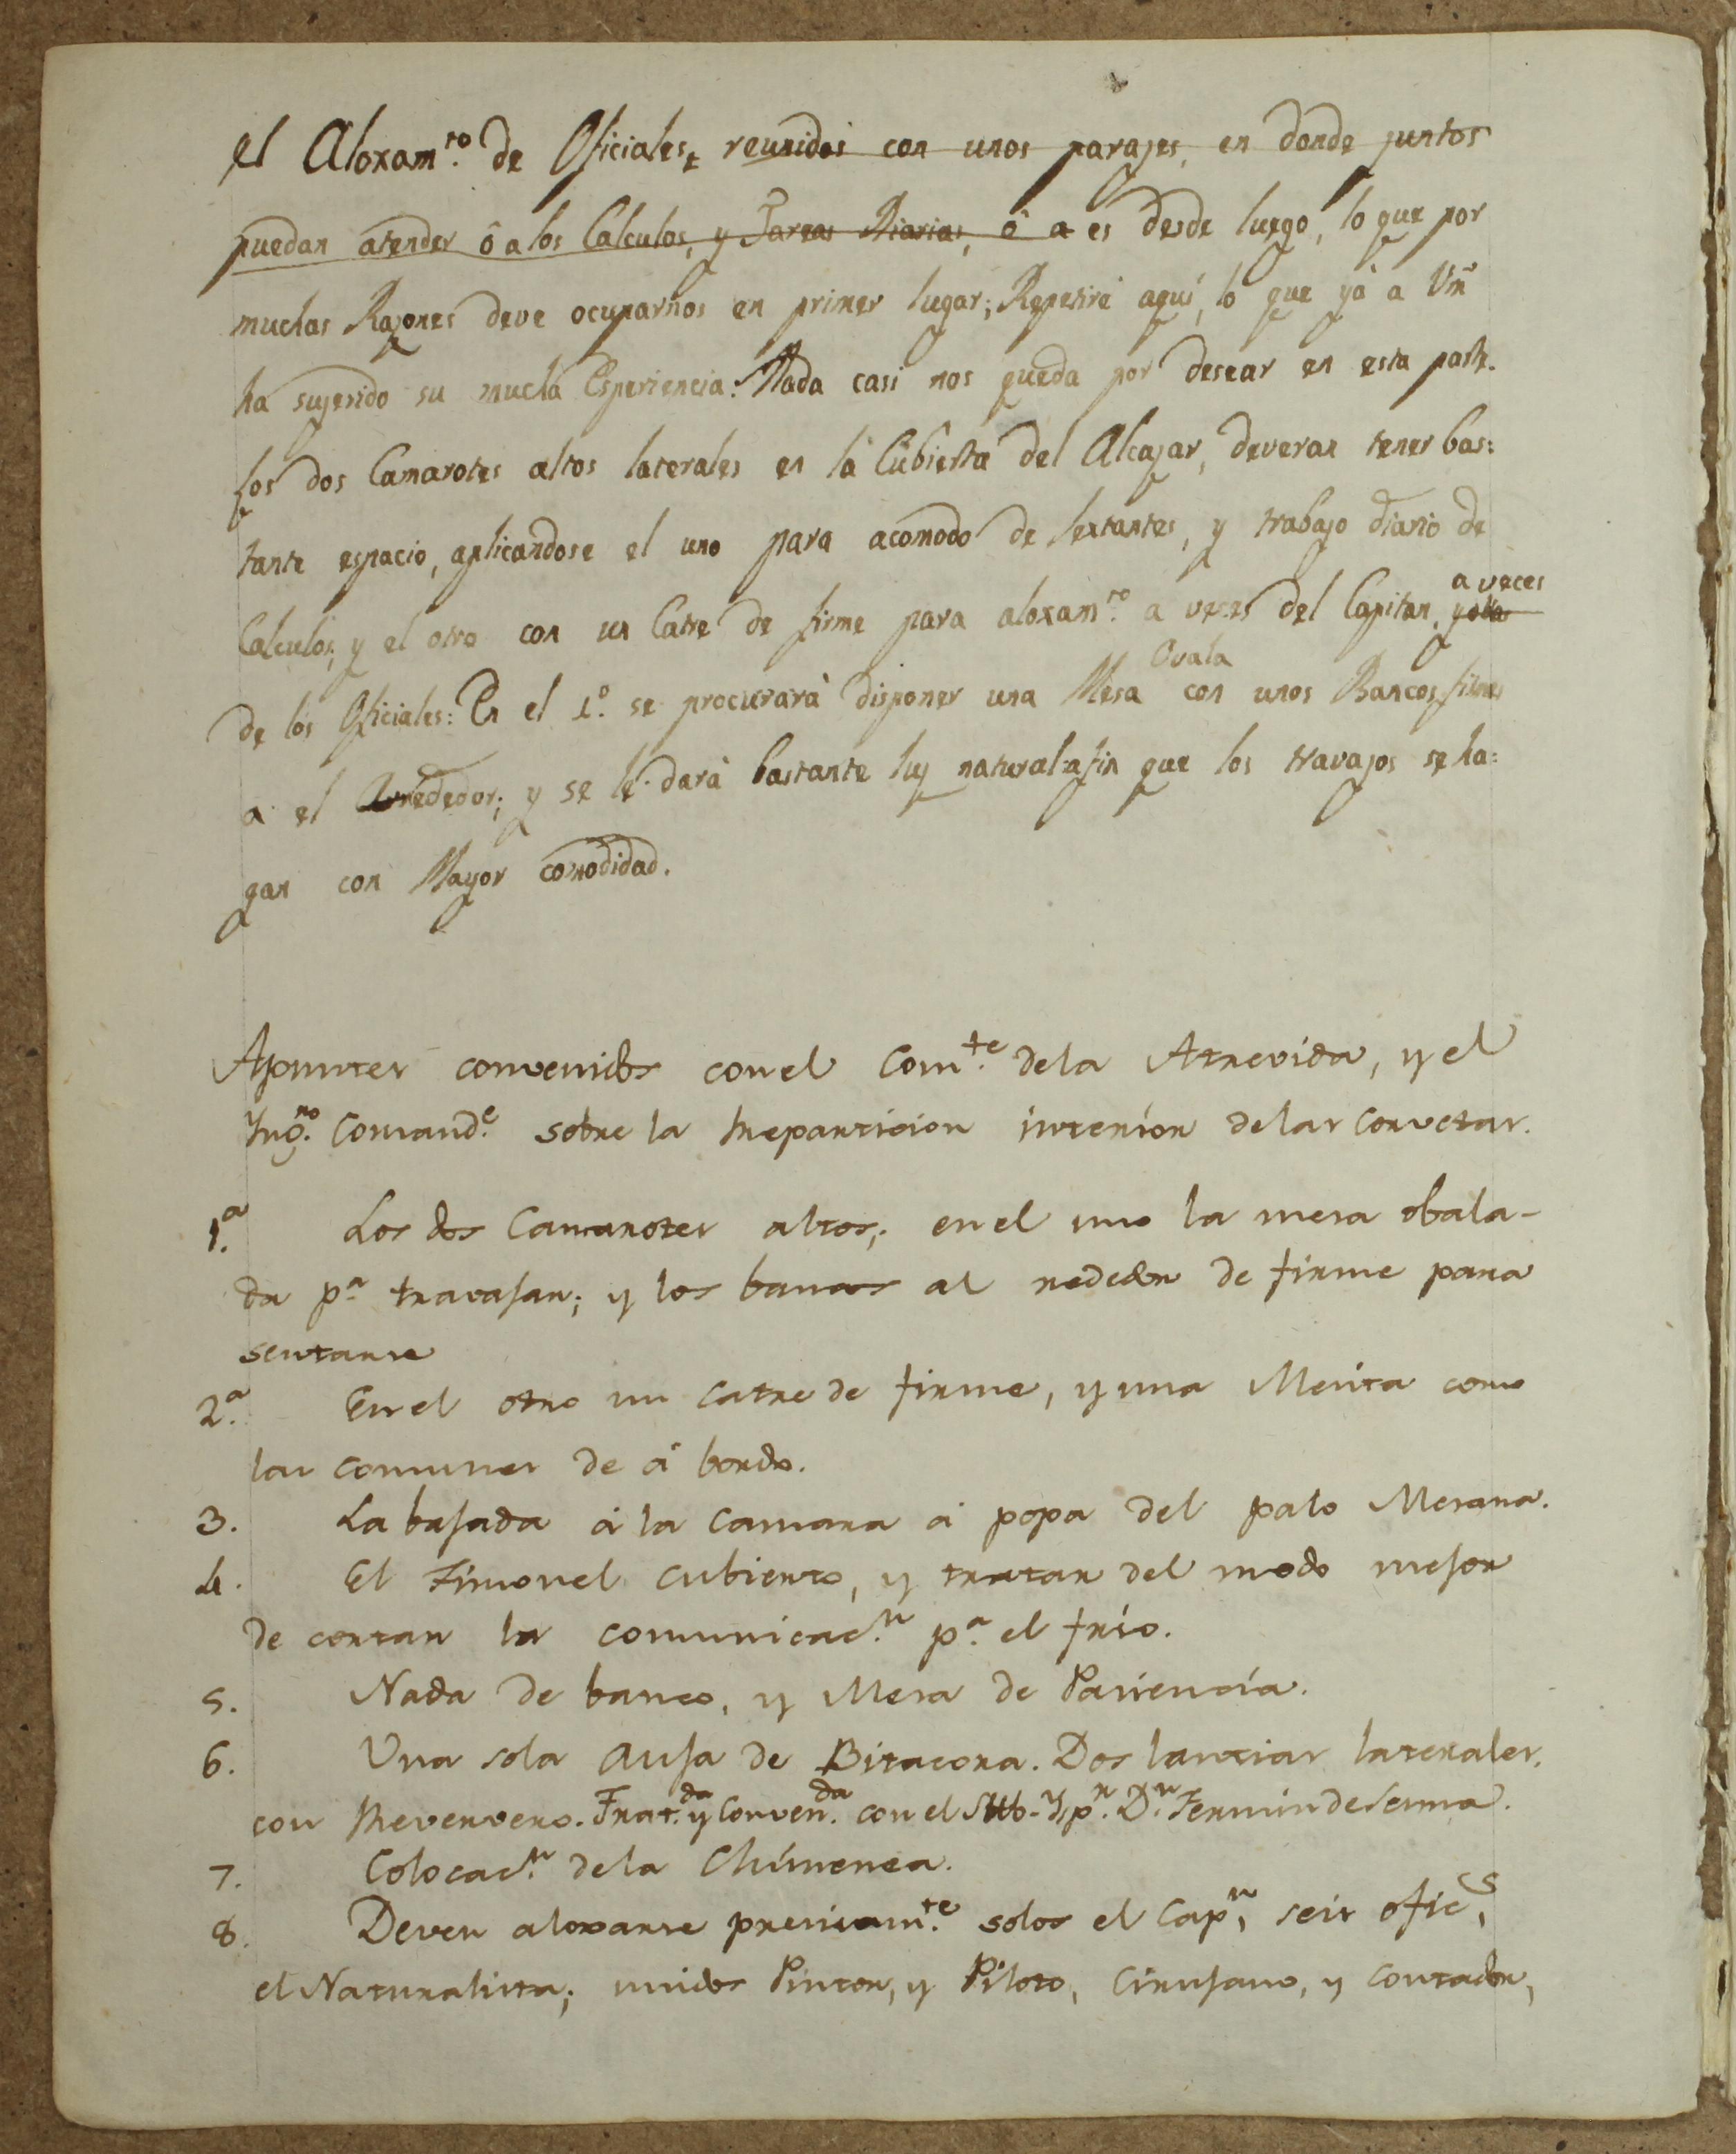 el Aloxam.to de Oficiales, reunidos con unos parajes, en donde juntos
puedan atender ô a los Calculos, y Tareas Diarias, ô a es desde luego, lo que por
muchas Razones deve ocuparnos en primer lugar; Repetiré aquí, lo que yà a Vm̃
ha sujerido su mucha Esperiencia. Nada casi nos queda por desear en esta parte.
Los dos Camarotes altos laterales en la Cubierta del Alcazar, deveran tener bas:
tante espacio, aplicandose el uno para acomodo de Sextantes, y trabajo diario de
a veces
Calculos; y el otro con un Catre de firme para aloxam.to a veces del Capitan, y otra
Ovala
de los Oficiales: En el 1.º se procurarà disponer una Mesa con unos Bancos firmes
a el Arrededor; y se le darà bastante luz natural afin que los travajos se ha:
gan con Mayor comodidad.
Apuntes convenidos con el Com.te de la Atrevida, y el
Yng.no Comand.e sobre la reparticion interior de las Corvetas.
1.a Los dos Camarotes altos; en el uno la mesa obala-
da p.a travajar; y los bancos al rededor de firme para
sentarse
2.a En el otro un catre de firme, y una Mesita como
las comunes de á bordo.
3. La bajada á la camara á popa del palo Mesana.
4. El Timonel cubierto, y tratar del modo mejor
de cortar la comunicac.n p.a el frio.
5. Nada de banco, y Mesa de Paciencia.
6. Una sola Caja de Bitacora. Dos lantias laterales,
con Rebervero. Trat.da y Conven.da con el Sub-Yp.r D.n Fermin de Sesma.
7. Colocac.n de la Chimenea.
8. Deven aloxarse precisam.te solos el Cap.n, seis ofic.s,
el Naturalista; unidos Pintor, y Piloto, Cirujano, y Contador,